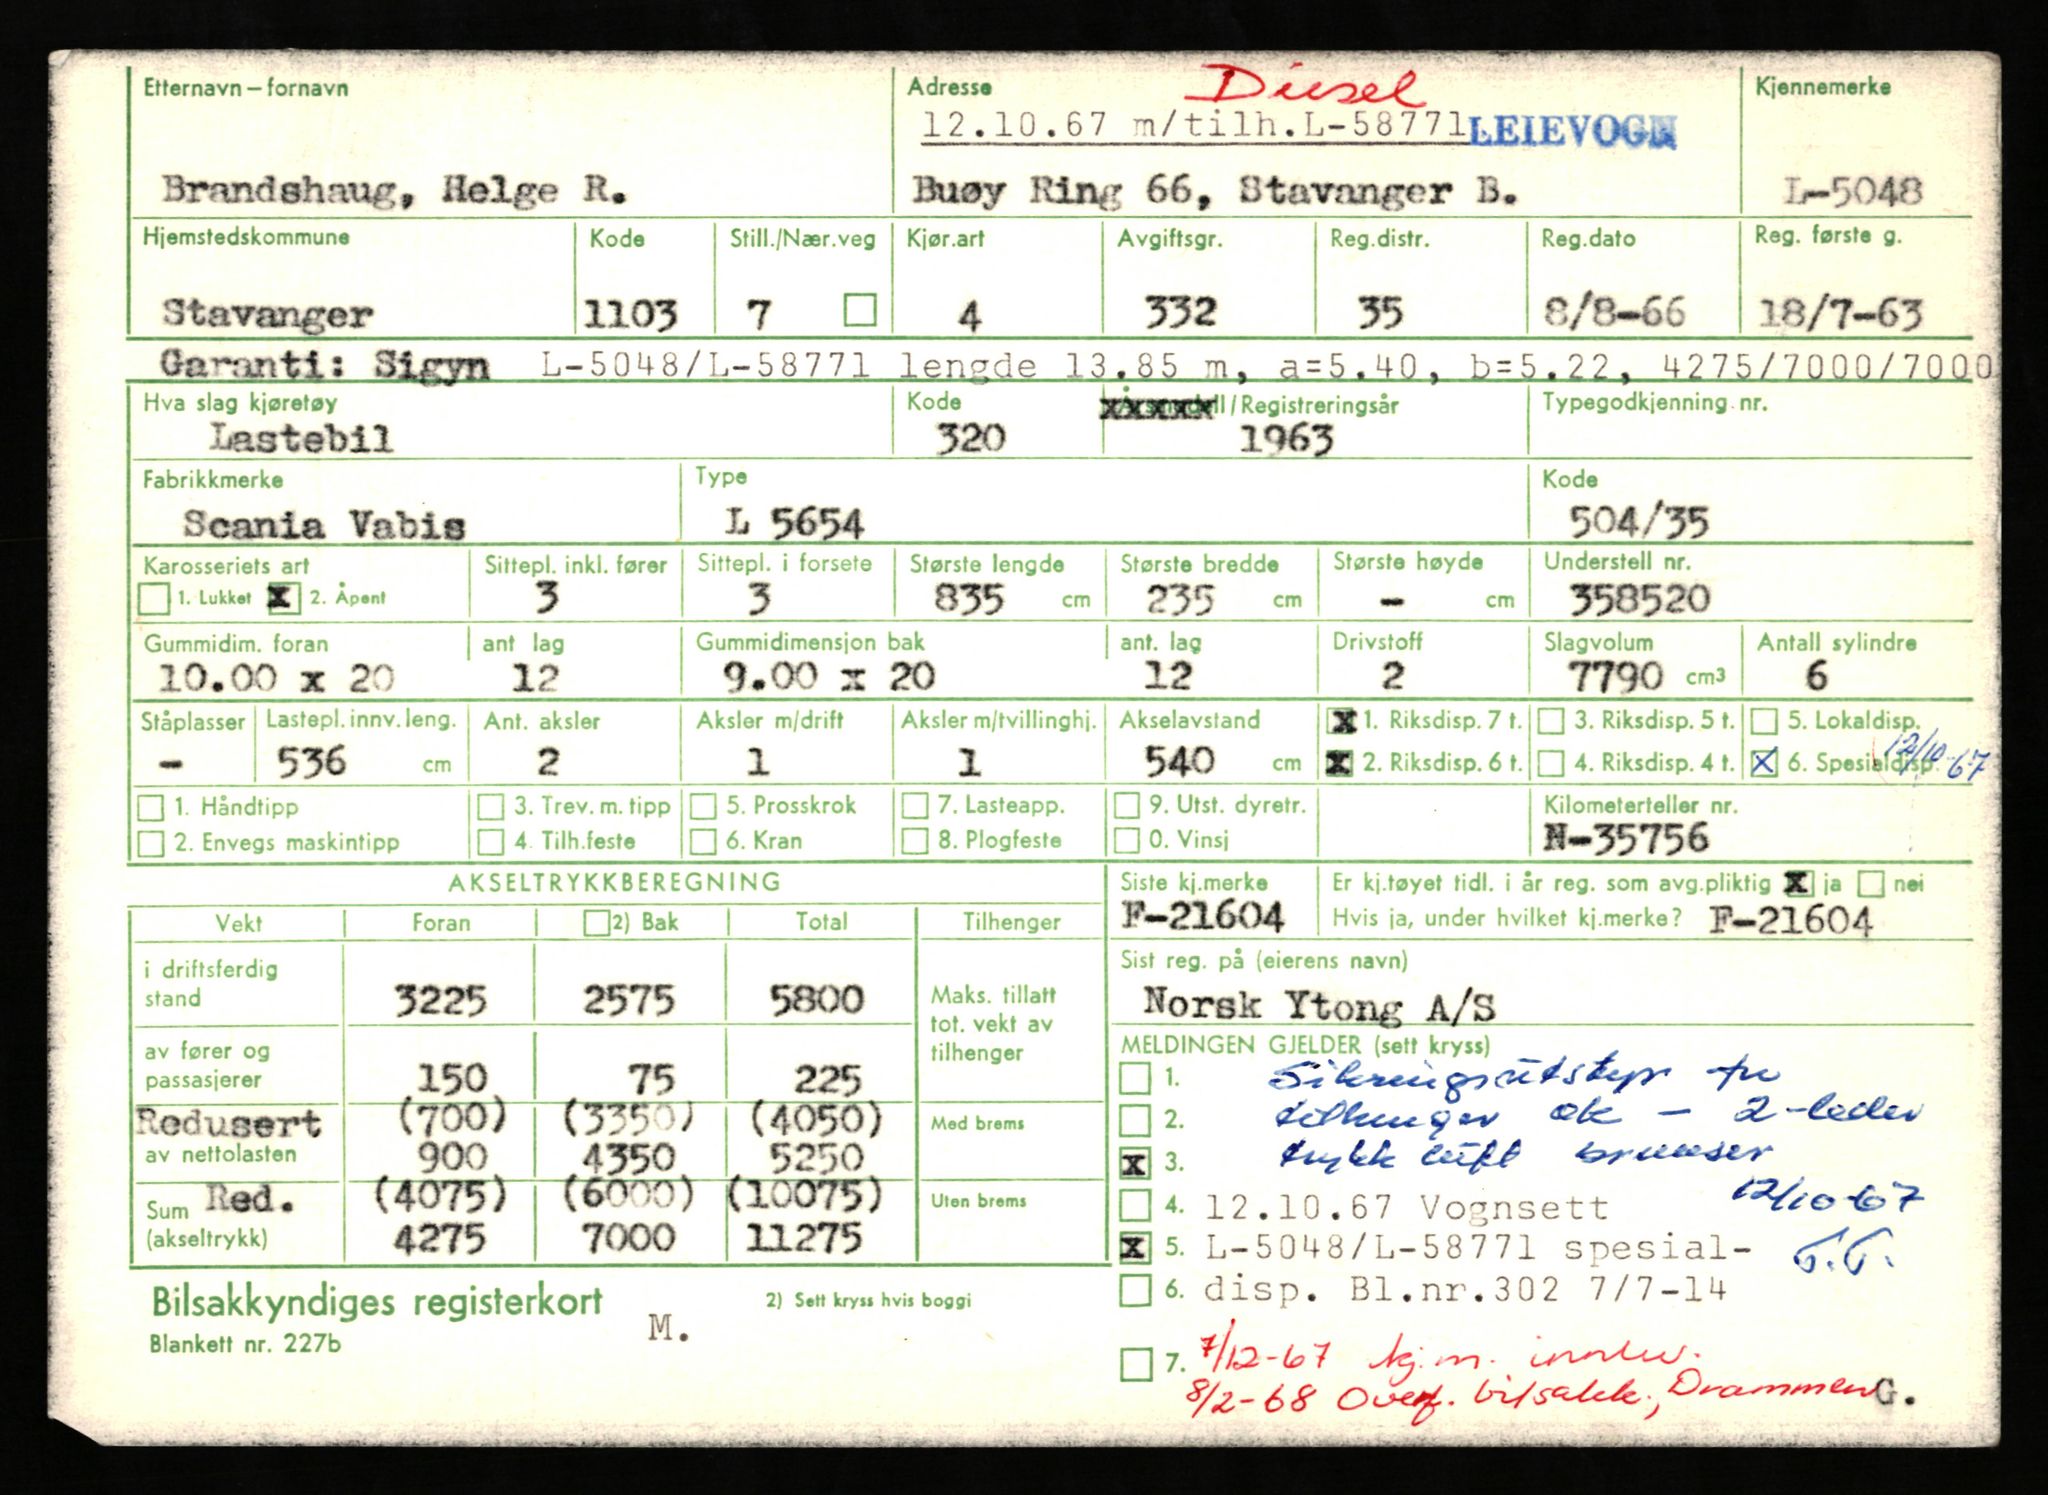 Etternavn – fornavn Adresse Diesel Kjennemerke
12.10.67 m/tilh.L-58771 LEIEVOGN
Brandshaug, Helge R. Buøy Ring 66, Stavanger B. L-5048
Hjemstedskommune Kode Still./Nær.veg Kjør.art Avgiftsgr. Reg.distr. Reg.dato Reg. første g.
Stavanger 1103 7 4 332 35 8/8-66 18/7-63
Garanti: Sigyn L-5048/L-58771 lengde 13.85 m, a=5.40, b=5.22, 4275/7000/7000
Hva slag kjøretøy Kode Årsmodell/Registreringsår Typegodkjenning nr.
Lastebil 320 1963
Fabrikkmerke Type Kode
Scania Vabis L 5654 504/35
Karosseriets art Sittepl. inkl. fører Sittepl. i forsete Største lengde Største bredde Største høyde Understell nr.
1. Lukket X 2. Åpent 3 3 835 cm 235 cm - cm 358520
Gummidim. foran ant lag Gummidimensjon bak ant. lag Drivstoff Slagvolum Antall sylindre
10.00 x 20 12 9.00 x 20 12 2 7790 cm3 6
Ståplasser Lastepl. innv. leng. Ant. aksler Aksler m/drift Aksler m/tvillinghj. Akselavstand X 1. Riksdisp. 7 t. 3. Riksdisp. 5 t. 5. Lokaldisp.
- 536 cm 2 1 1 540 cm X 2. Riksdisp. 6 t. 4. Riksdisp. 4 t. X 6. Spesialdisp. 12/10-67
1. Håndtipp 3. Trev. m. tipp 5. Prosskrok 7. Lasteapp. 9. Utst. dyretr. Kilometerteller nr.
2. Envegs maskintipp 4. Tilh.feste 6. Kran 8. Plogfeste 0. Vinsj N-35756
AKSELTRYKKBEREGNING Siste kj.merke Er kj.tøyet tidl. i år reg. som avg.pliktig X ja nei
Vekt Foran 2) Bak Total Tilhenger F-21604 Hvis ja, under hvilket kj.merke? F-21604
i driftsferdig stand 3225 2575 5800 Maks. tillatt tot. vekt av tilhenger
Sist reg. på (eierens navn)
Norsk Ytong A/S
av fører og passasjerer 150 75 225
MELDINGEN GJELDER (sett kryss)
Redusert (700) (3350) (4050) Med brems
av nettolasten 900 4350 5250
Sum Red. (4075) (6000) (10075) Uten brems
(akseltrykk) 4275 7000 11275
1. Sikringsutstyr for
2. tilhenger ok – 2-leder
X 3. trykkluft bremser
12/10-67
4. 12.10.67 Vognsett
X 5. L-5048/L-58771 spesial-
6. disp. Bl.nr.302 7/7-14
Bilsakkyndiges registerkort M. 2) Sett kryss hvis boggi
Blankett nr. 227b
7. 7/12-67 kj.m. innlev.
8/2-68 Overf. bilsakk., Drammen G.